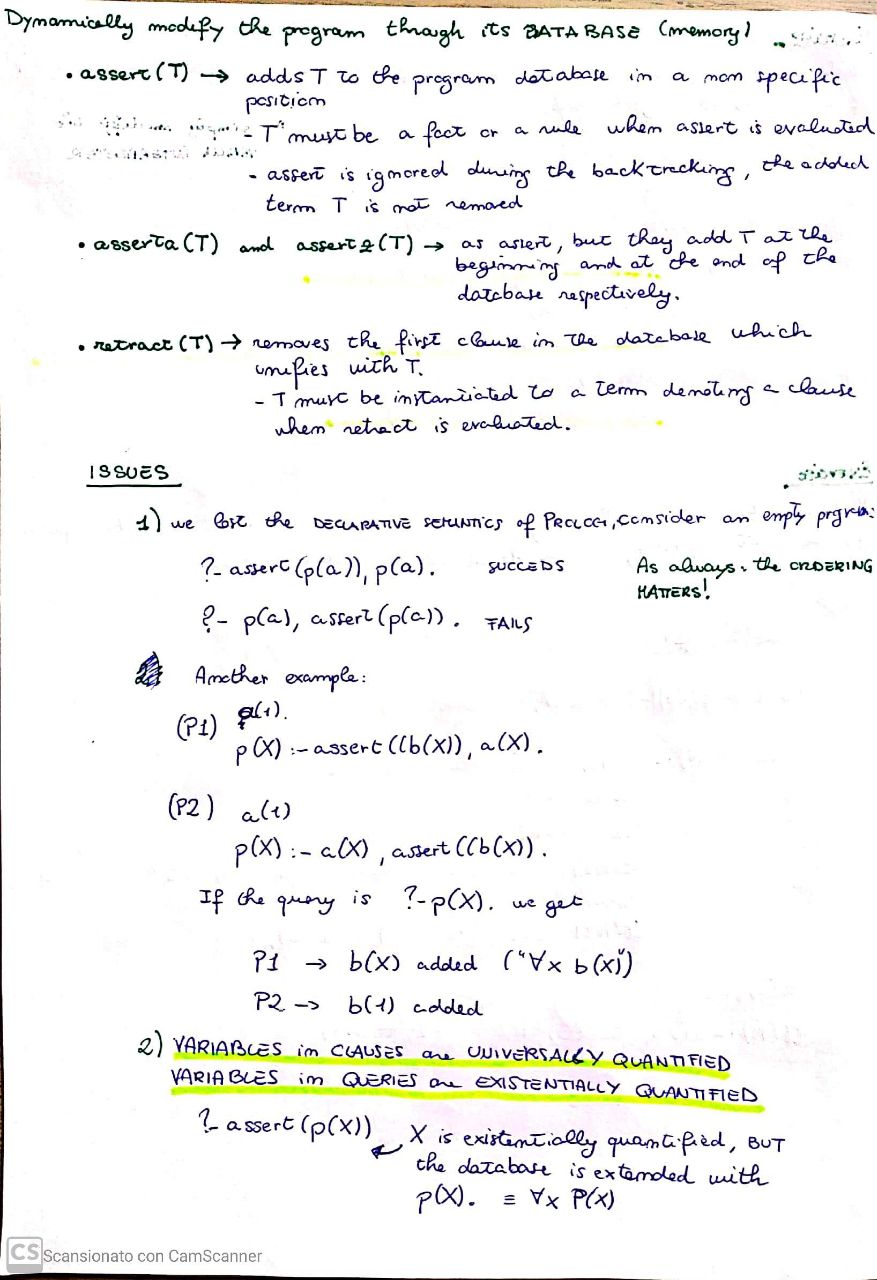 Dynamically modify the program through its DATABASE (memory)
• assert(T) → adds T to the program database in a non specific
position
- T must be a fact or a rule when assert is evaluated
- assert is ignored during the backtracking, the added
term T is not removed
• asserta(T) and assertz(T) → as assert, but they add T at the
beginning and at the end of the
database respectively.
• retract(T) → removes the first clause in the database which
unifies with T.
- T must be instantiated to a term denoting a clause
when retract is evaluated.
ISSUES
1) we lost the DECLARATIVE SEMANTICS of PROLOG, consider an empty prgram:
?- assert(p(a)), p(a). SUCCEDS
As always: the ORDERING
MATTERS!
?- p(a), assert(p(a)). FAILS
Another example:
(P1) a(1).
p(X) :- assert((b(X)), a(X).
(P2) a(1)
p(X) :- a(X), assert((b(X)).
If the query is ?-p(X). we get
P1 → b(X) added ("∀x b(x)")
P2 → b(1) added
2) VARIABLES in CLAUSES are UNIVERSALLY QUANTIFIED
VARIABLES in QUERIES are EXISTENTIALLY QUANTIFIED
?- assert(p(X)) X is existentially quantified, BUT
the database is extended with
p(X). ≡ ∀x P(x)
CS Scansionato con CamScanner